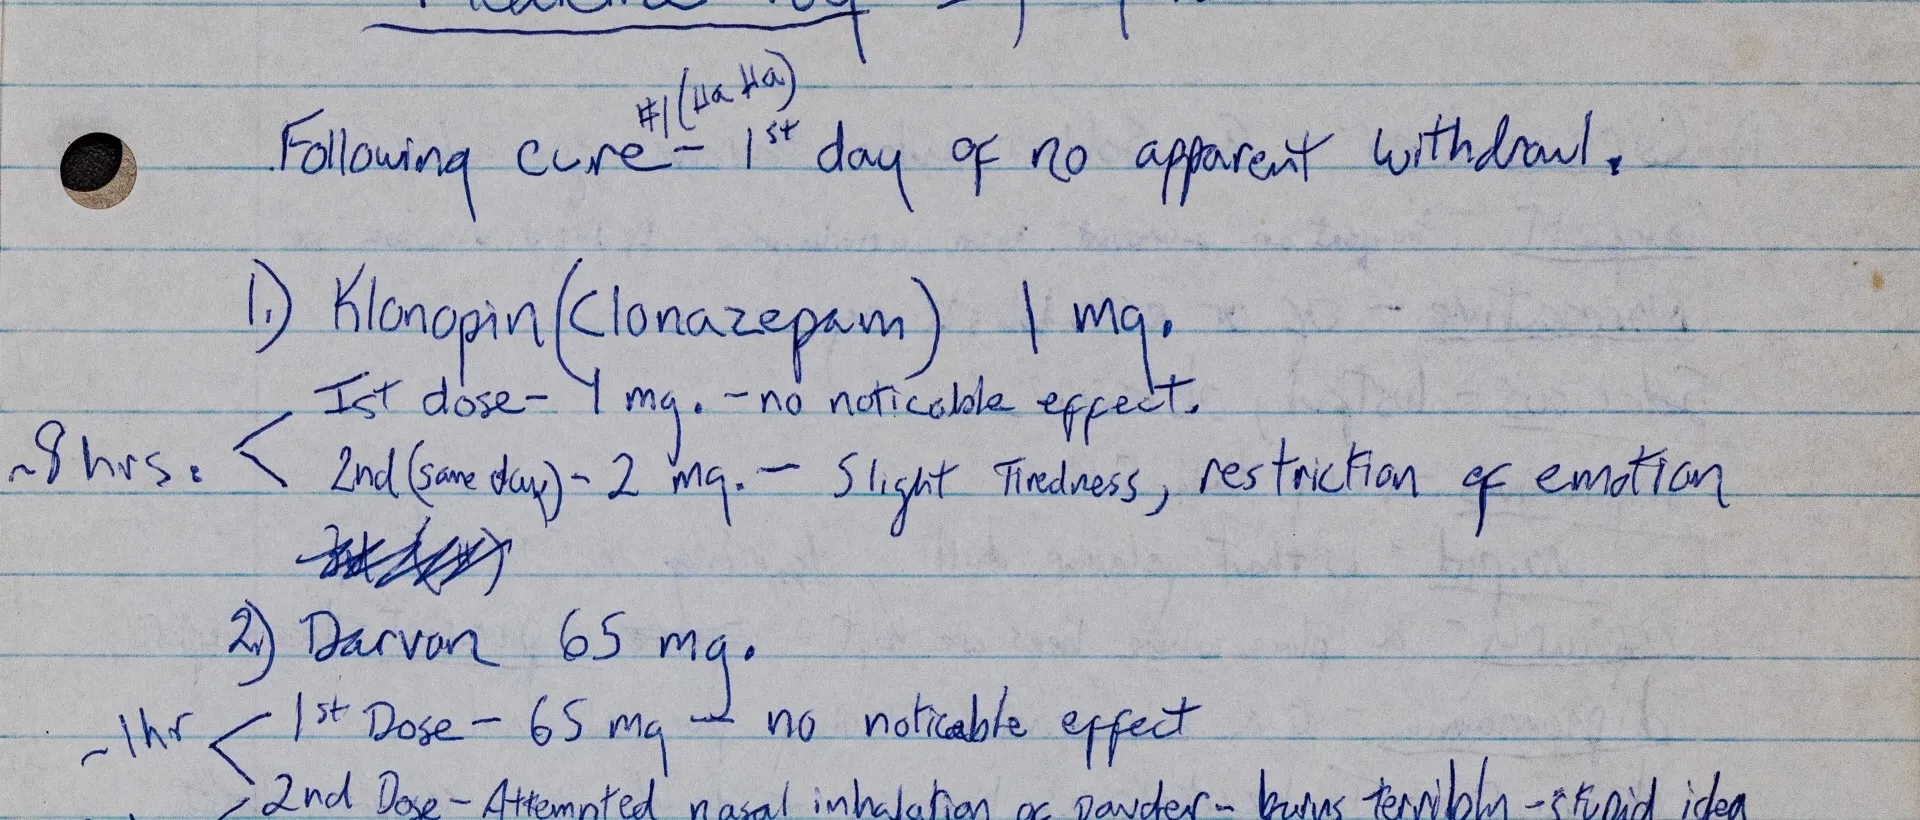 Medicine Log
#1 (Ha Ha)
Following cure - 1st day of no apparent withdrawl.
1.) Klonopin (Clonazepam) 1 mg.
Ist dose - 1 mg. - no noticable effect.
~8 hrs.
2nd (same day) - 2 mg. - Slight Tiredness, restriction of emotion
2.) Darvon 65 mg.
1st Dose - 65 mg - no noticable effect
~1hr
2nd Dose - Attempted nasal inhalation of powder - burns terribly - stupid idea